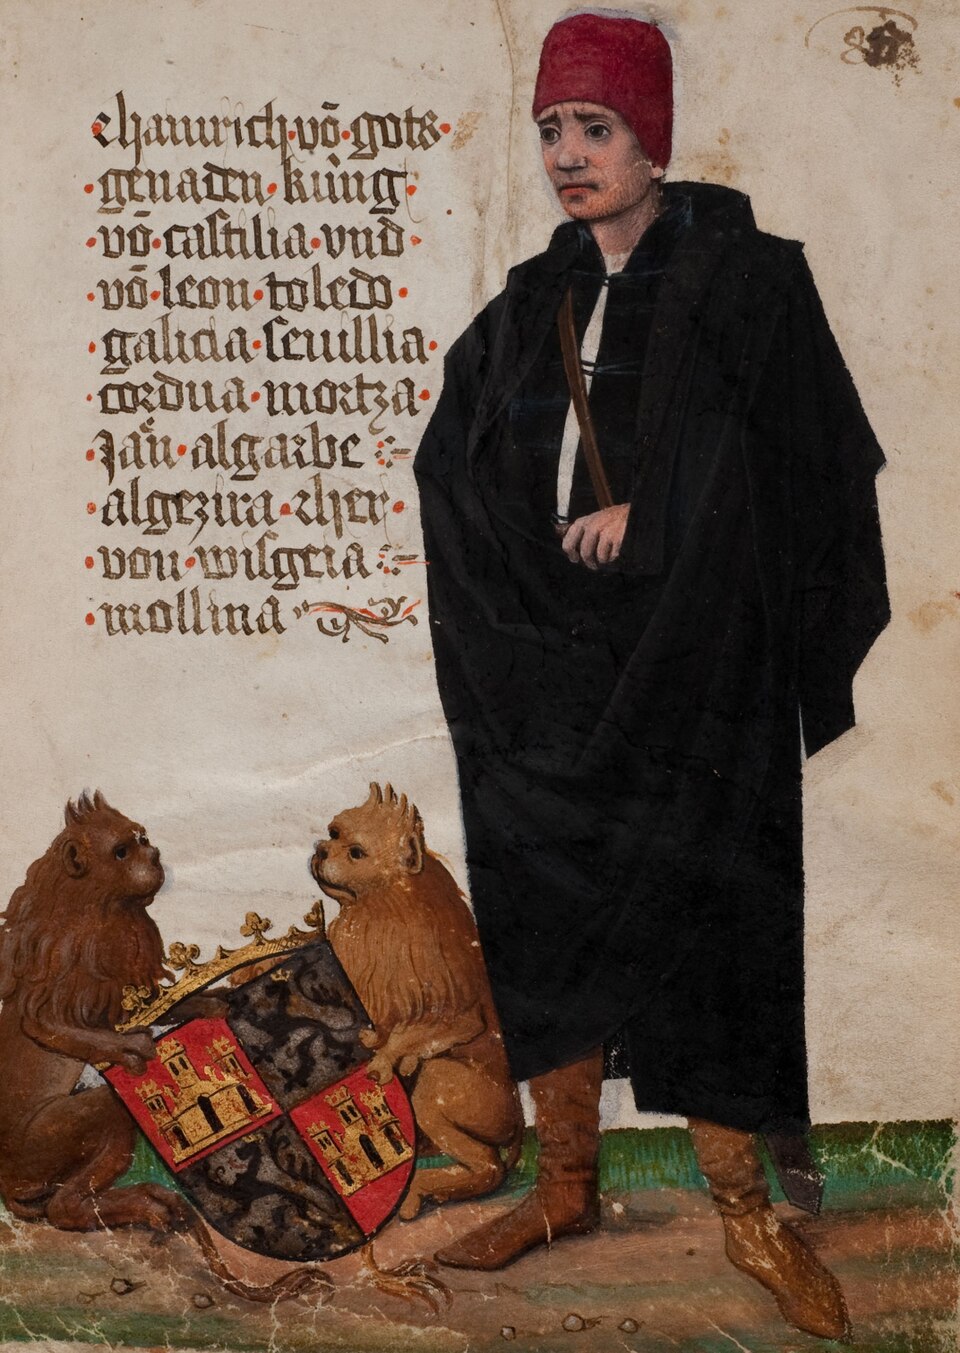 ·hainrich·vō·gots·
·genaden·küng·
·vō·castilia·vnd·
·vō·leon·toledo·
·galicia·seuillia·
·cordua·mortza·
·Jaen·algarbe
·algezira·vnd·her·
·von·wisgeia
·mollina